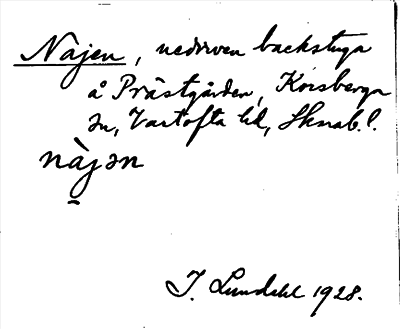 Najen, nedriven backstuga
å Prästgården, Korsberga
sn, Vartofta hd, Skarab. l.
nàjən
J. Lundahl 1928.